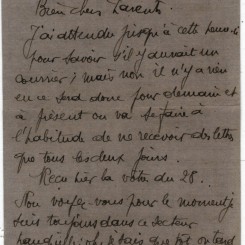 Bien chers Parents.
J'ai attendu jusqu'à cette heure-ci
pour savoir s'il y aurait un
courrier ; mais non il n'y a rien
ce sera donc pour demain et
à présent on va se faire à
l'habitude de ne recevoir des lettres
que tous les deux jours.
Reçu hier la votre du 28..
Non voyez vous pour le moment je
suis toujours dans ce secteur
je sais que tôt ou tard